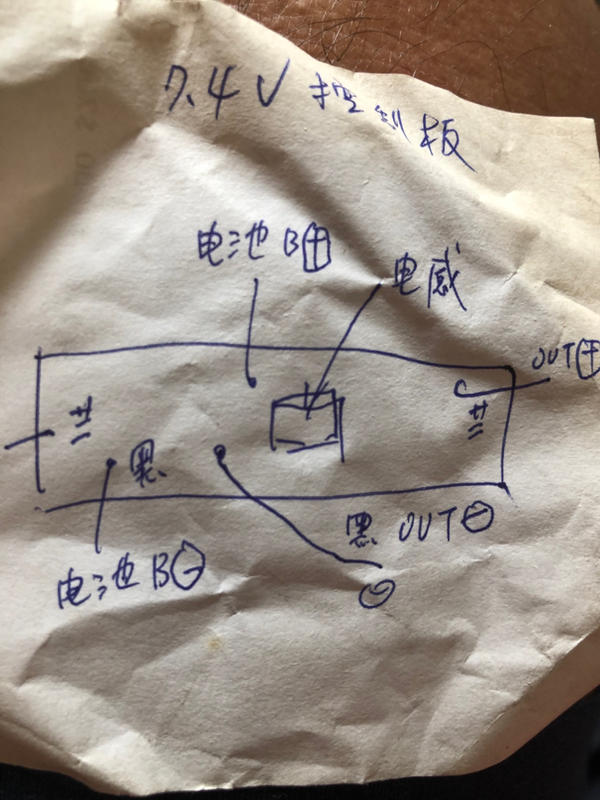 7.4V 控制板
电池 B⊕
电感
OUT⊕
红
红
黑
黑 OUT⊖
电池 B⊖
⊖